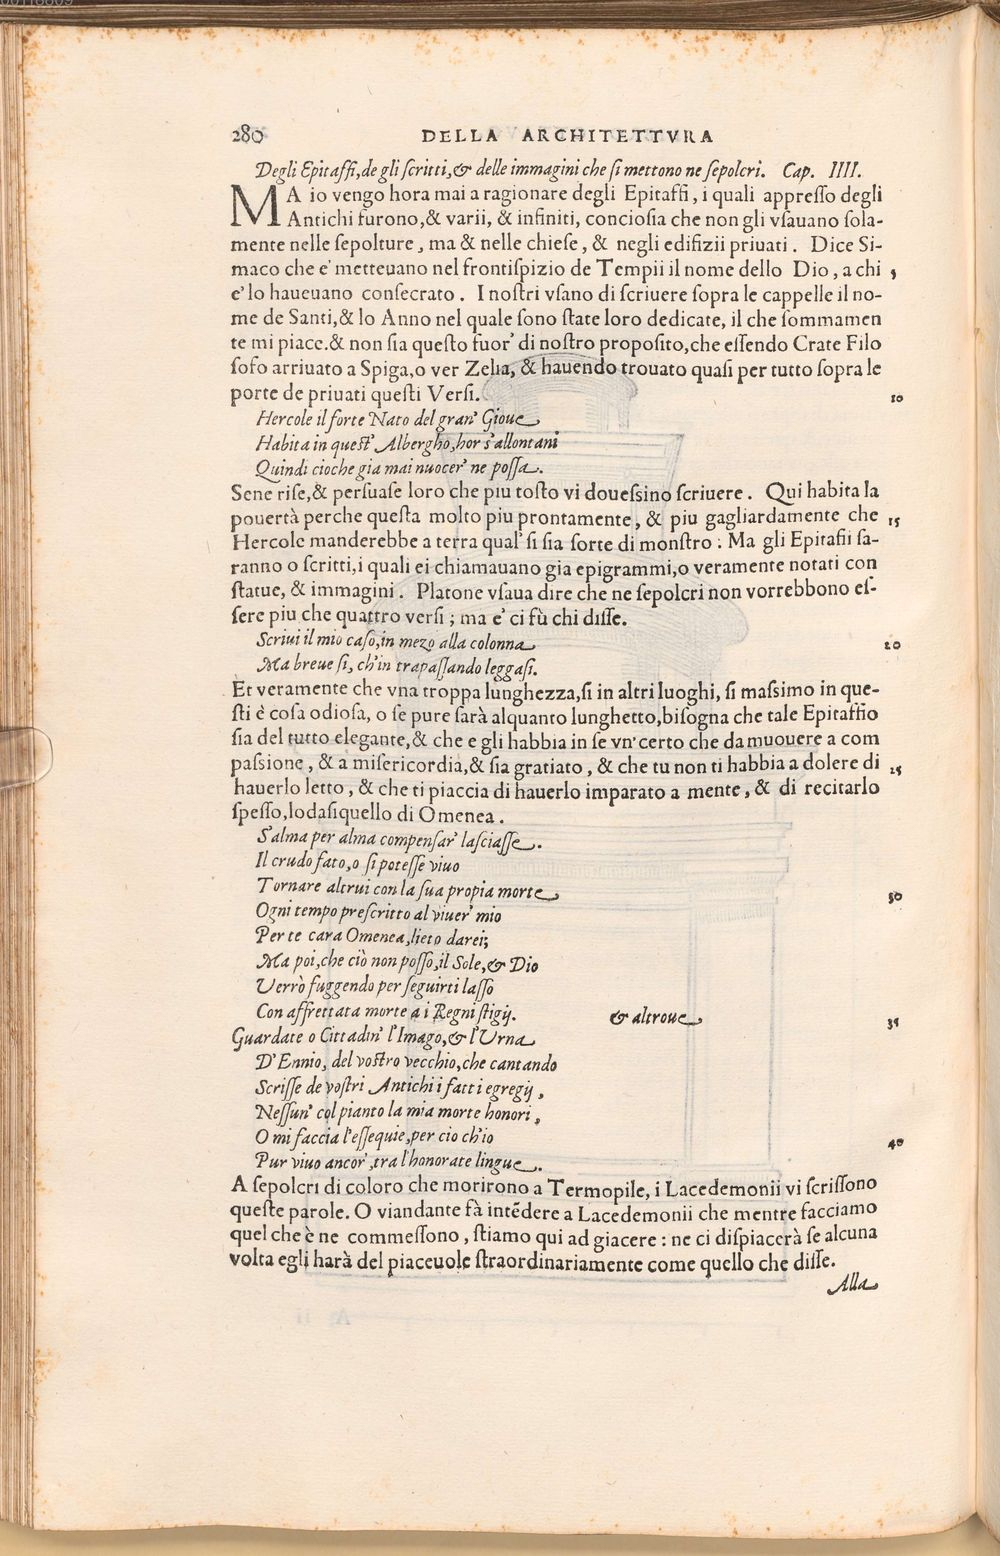 280 DELLA ARCHITETTVRA
Degli Epitaffi, de gli ſcritti, & delle immagini che ſi mettono ne ſepolcri. Cap. IIII.
MA io vengo hora mai a ragionare degli Epitaffi, i quali appreſſo degli
Antichi furono, & varii, & infiniti, concioſia che non gli vſauano ſola-
mente nelle ſepolture, ma & nelle chieſe, & negli edifizii priuati. Dice Si-
maco che e' metteuano nel frontiſpizio de Tempii il nome dello Dio, a chi 5
e' lo haueuano conſecrato. I noſtri vſano di ſcriuere ſopra le cappelle il no-
me de Santi, & lo Anno nel quale ſono ſtate loro dedicate, il che ſommamen
te mi piace. & non ſia queſto fuor' di noſtro propoſito, che eſſendo Crate Filo
ſofo arriuato a Spiga, o ver Zelia, & hauendo trouato quaſi per tutto ſopra le
porte de priuati queſti Verſi. 10
Hercole il forte Nato del gran' Gioue
Habita in queſt' Albergho, hor s'allontani
Quindi cioche gia mai nuocer' ne poſſa.
Sene riſe, & perſuaſe loro che piu toſto vi doueſsino ſcriuere. Qui habita la
pouertà perche queſta molto piu prontamente, & piu gagliardamente che 15
Hercole manderebbe a terra qual' ſi ſia ſorte di monſtro: Ma gli Epitafii ſa-
ranno o ſcritti, i quali ei chiamauano gia epigrammi, o veramente notati con
ſtatue, & immagini. Platone vſaua dire che ne ſepolcri non vorrebbono eſ-
ſere piu che quattro verſi; ma e' ci fù chi diſſe.
Scriui il mio caſo, in mezo alla colonna 20
Ma breue ſi, ch'in trapaſſando leggaſi.
Et veramente che vna troppa lunghezza, ſi in altri luoghi, ſi maſsimo in que-
ſti è coſa odioſa, o ſe pure ſarà alquanto lunghetto, biſogna che tale Epitaffio
ſia del tutto elegante, & che e gli habbia in ſe vn' certo che da muouere a com
paſsione, & a miſericordia, & ſia gratiato, & che tu non ti habbia a dolere di 25
hauerlo letto, & che ti piaccia di hauerlo imparato a mente, & di recitarlo
ſpeſſo, lodaſi quello di Omenea.
S'alma per alma compenſar' laſciaſſe.
Il crudo fato, o ſi poteſſe viuo
Tornare altrui con la ſua propia morte 30
Ogni tempo preſcritto al viuer' mio
Per te cara Omenea, lieto darei;
Ma poi, che ciò non poſſo, il Sole, & Dio
Verrò fuggendo per ſeguirti laſſo
Con affrettata morte a i Regni ſtigij. & altroue 35
Guardate o Cittadin' l'Imago, & l'Urna
D'Ennio, del voſtro vecchio, che cantando
Scriſſe de voſtri Antichi i fatti egregij,
Neſſun' col pianto la mia morte honori,
O mi faccia l'eſſequie, per cio ch'io 40
Pur viuo ancor', tra l'honorate lingue.
A ſepolcri di coloro che morirono a Termopile, i Lacedemonii vi ſcriſſono
queſte parole. O viandante fà intēdere a Lacedemonii che mentre facciamo
quel che è ne commeſſono, ſtiamo qui ad giacere: ne ci diſpiacerà ſe alcuna
volta egli harà del piaceuole ſtraordinariamente come quello che diſſe.
Alla